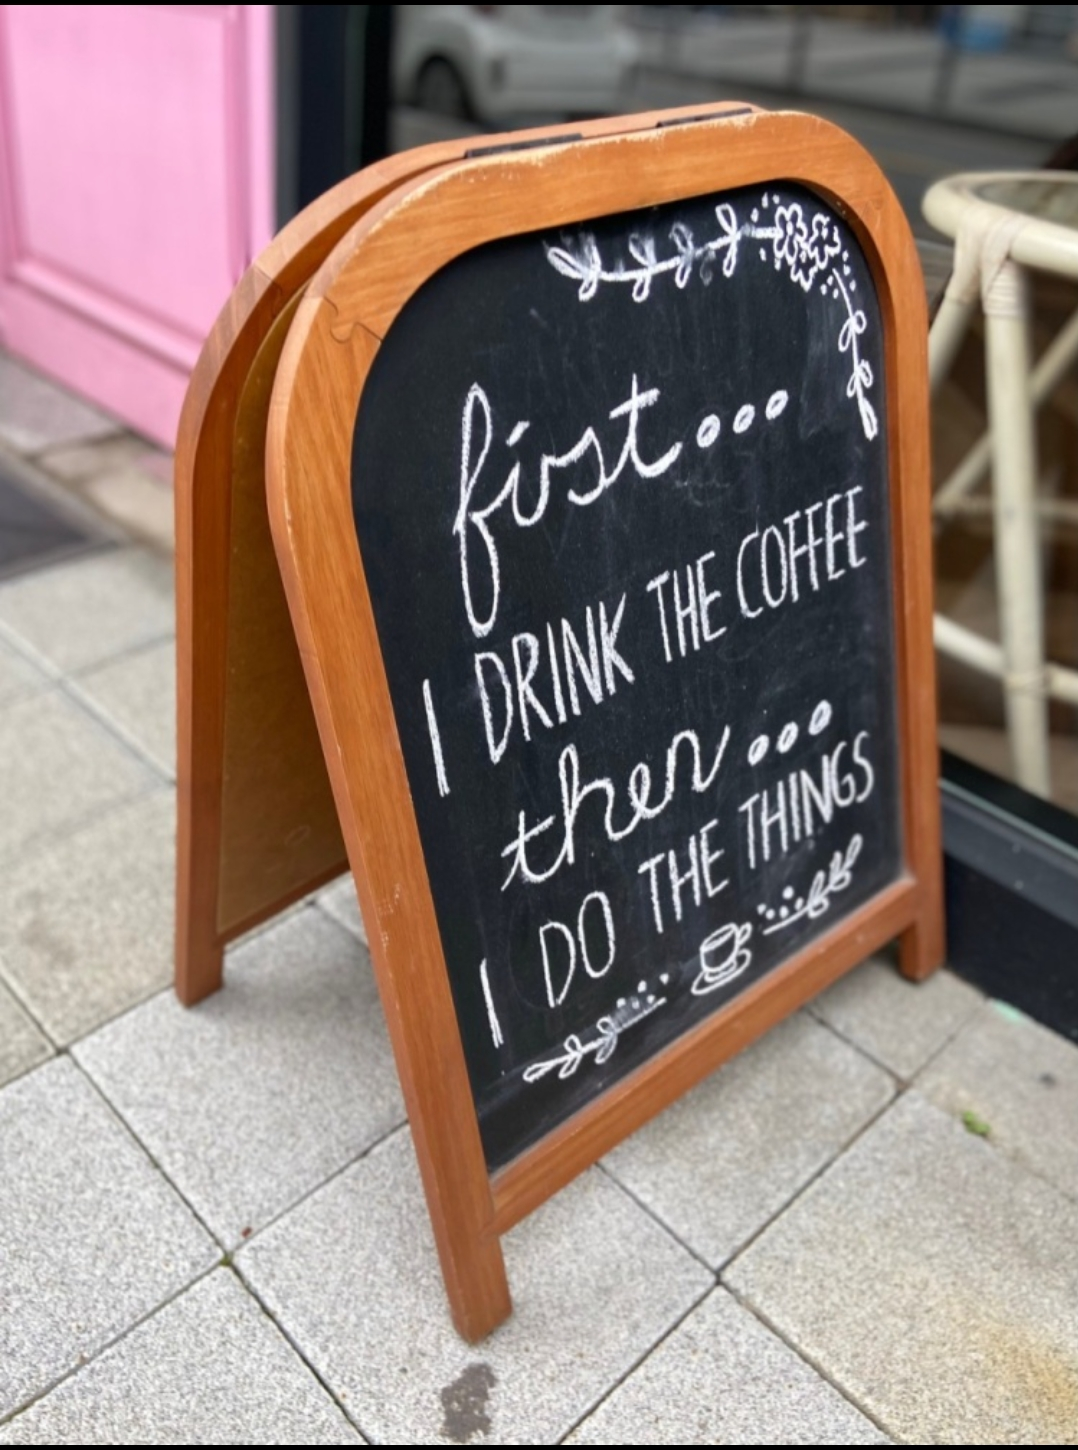 first...
I DRINK THE COFFEE
then...
I DO THE THINGS